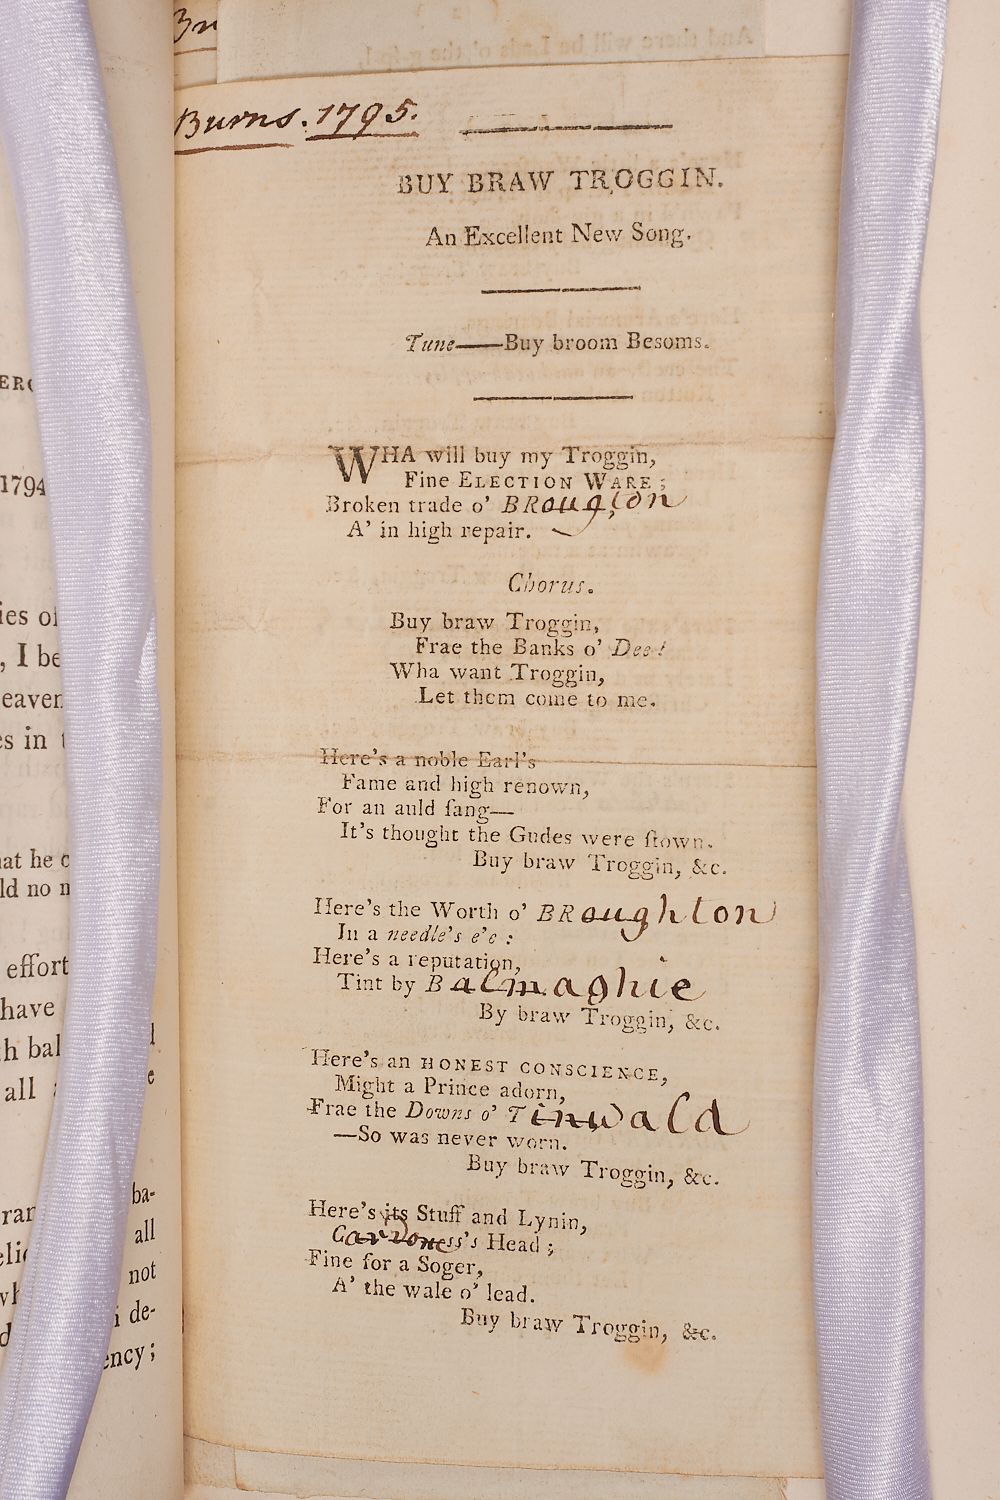 Burns. 1795.
BUY BRAW TROGGIN.
An Excellent New Song.
Tune——Buy broom Besoms.
WHA will buy my Troggin,
Fine ELECTION WARE;
Broken trade o' BRoughton
A' in high repair.
Chorus.
Buy braw Troggin,
Frae the Banks o' Dee!
Wha want Troggin,
Let them come to me.
Here's a noble Earl's
Fame and high renown,
For an auld ſang—
It's thought the Gudes were ſtown.
Buy braw Troggin, &c.
Here's the Worth o' BRoughton
In a needle's e'e:
Here's a reputation,
Tint by Balmaghie
By braw Troggin, &c.
Here's an HONEST CONSCIENCE,
Might a Prince adorn,
Frae the Downs o' Tinwald
—So was never worn.
Buy braw Troggin, &c.
Here's its Stuff and Lynin,
Cardoness's Head;
Fine for a Soger,
A' the wale o' lead.
Buy braw Troggin, &c.
1794
ies of
, I be
eaven
es in
effort
have
all
ba-
all
not
de-
ency;